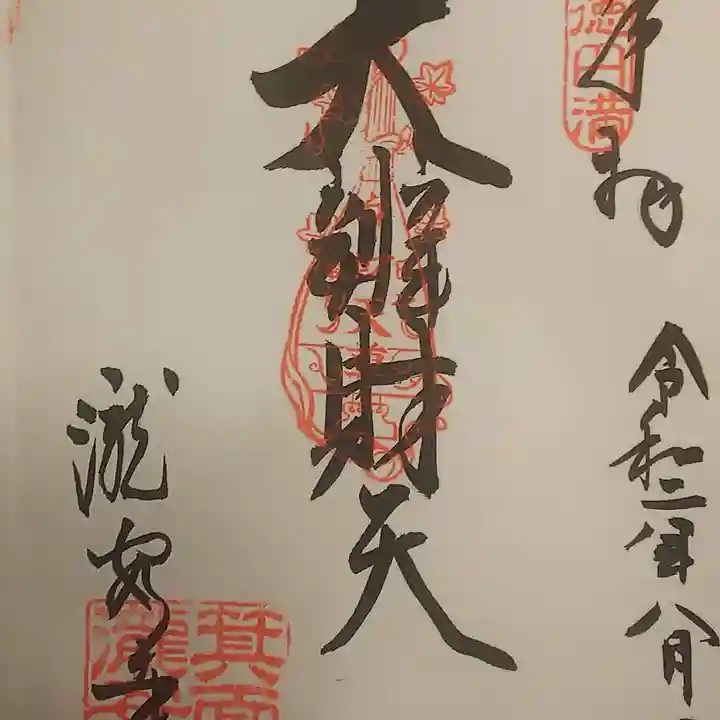 奉拝
令和二年八月
大辨財天
瀧安寺
徳円満
箕面
瀧安